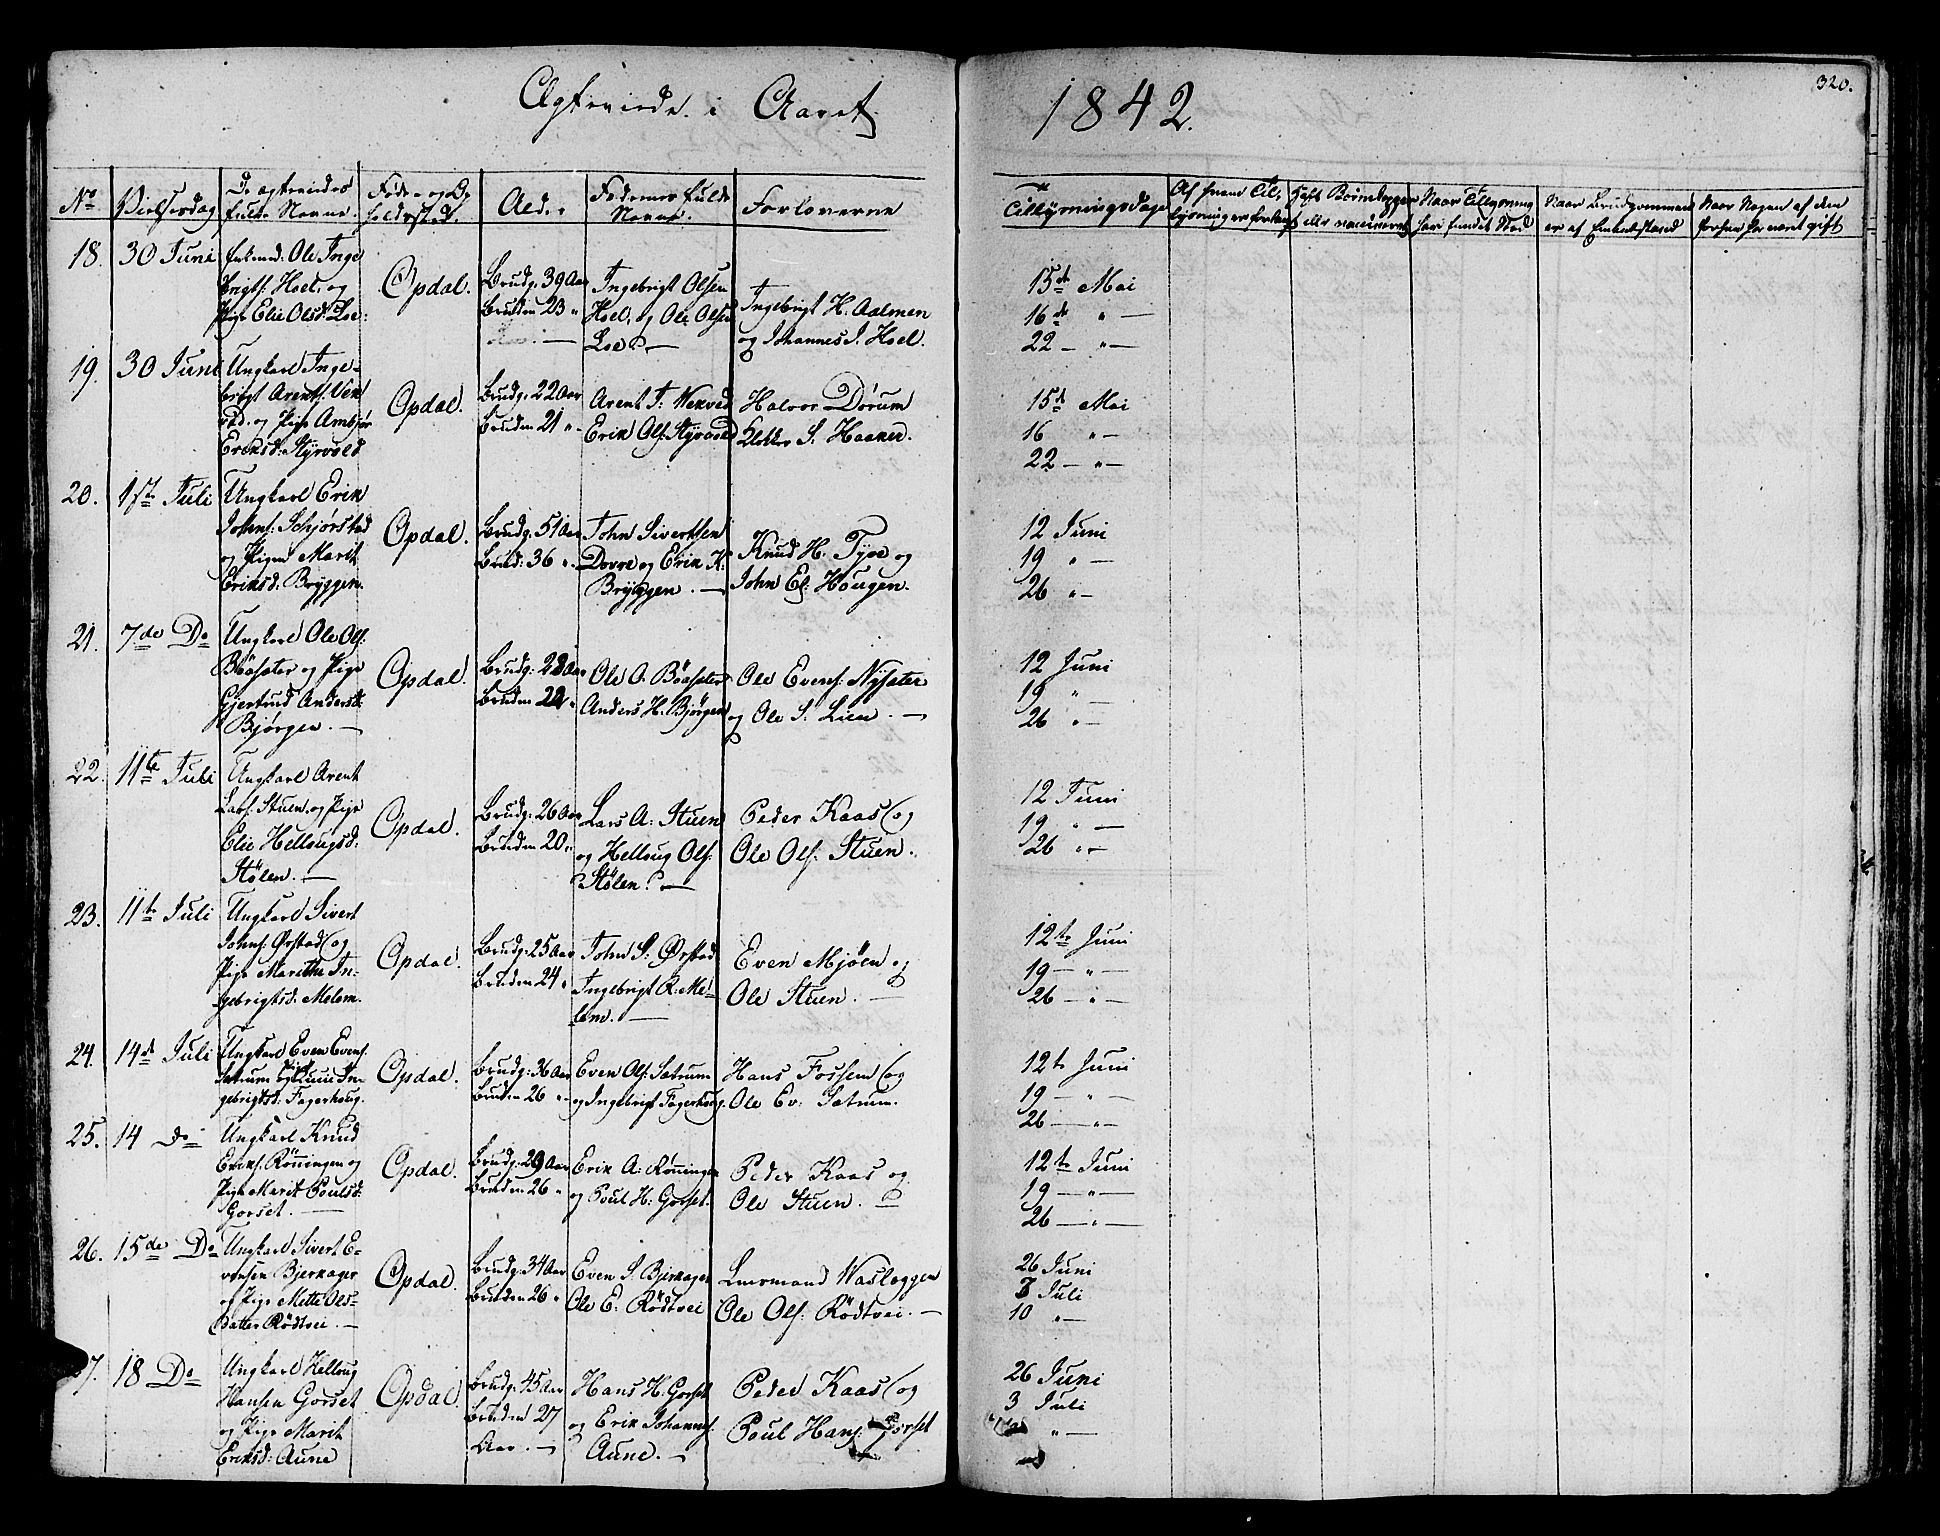 Ægteviede i Aaret 1842.
320.
No.
Vielsesdag
De ægteviedes fulde Navne.
Føde- og Opholdssted.
Alder
Fædrenes fulde Navne.
Forloverne
Tillysningsdage
Af hvem Tillysning er forlangt
Havt Børnekopper ell. vaccineret
Naar Tillysning har fundet Sted
Naar Brudgommen er af Enkestand
Naar Nogen af dem forhen har været gift
18.
30 Juni
Enkemd. Ole Inge
brigts: Hoel, og
Pige Elie Olsd: Loe.
Opdal.
Brudg: 39 Aar
Bruden 23 "
Ingebrigt Olsen
Hoel, og Ole Olsen
Loe. —
Ingebrigt H. Aalmen
og Johannes I. Hoel.
15de Mai
16de " —
22 — " —
19.
30 Juni
Ungkarl Inge-
brigt Arents: Vek
ved. og Pige Ambjør
Eriksd: Styrvold
Opdal.
Brudg: 22 Aar
Bruden 21 "
Arent I: Vekved
Erik Ols: Styrvold
Halvor Dørum
Klokker S. Haaker.
15de Mai
16 " —
22 — " —
20.
1ste Juli
Ungkarl Erik
Johns: Schjørstad
og Pigen Marit
Eriksd: Bryggen.
Opdal.
Brudg: 51 Aar
Brud: 36 "
John Sivertsen
Dovre og Erik K:
Bryggen. —
Knud H. Tyve og
John El: Hougen.
12 Juni
19 " —
26 " —
21.
7de Do
Ungkarl Ole Ols:
Bøasæter og Pige
Gjertrud Andersd:
Bjørgen. —
Opdal.
Brudg: 28 Aar
Bruden 22 "
Ole O. Bøasæter
Anders H. Bjørgen
Ole Evens: Nysæter
og Ole S. Lien. —
12 Juni
19 " —
26 " —
22.
11te Juli
Ungkarl Arent
Lars: Stuen, og Pige
Elie Hellougsd:
Stølen. —
Opdal.
Brudg: 26 Aar
Bruden 20 "
Lars A: Stuen
og Helloug Ols:
Stølen. —
Peder Kaas og
Ole Ols: Stuen.
12 Juni
19 " —
26 " —
23.
11te Juli
Ungkarl Sivert
Johns: Ørstad og
Pige Marithe In-
gebrigtsd: Melem.
Opdal.
Brudg: 25 Aar
Bruden 24 "
John S: Ørstad
Ingebrigt R: Me-
lem. —
Even Mjøen og
Ole Stuen. —
12te Juni
19 — " —
26 — " —
24.
14de Juli
Ungkarl Even Evens:
Sætrum og Pige Guni In-
gebrigtsd: Fagerhoug.
Opdal.
Brudg: 36 Aar
Bruden 26 "
Even Ols: Sætrum
og Ingebrigt Fagerhoug.
Hans Fossem og
Ole Ev: Sætrum.
12te Juni
19 — " —
26 — " —
25.
14 Do
Ungkarl Knud
Eriks: Rønningen og
Pige Marit Pouls d:
Gorset. —
Opdal.
Brudg: 29 Aar
Bruden 26 "
Erik A: Rønningen
og Poul H: Gorset.
Peder Kaas og
Ole Stuen. —
12te Juni
19 — " —
26 — " —
26.
15de Do
Ungkarl Sivert E-
vensen Bjerkager
og Pige Mette Ols-
datter Rødtvei. —
Opdal.
Brudg: 34 Aar
Bruden 26 "
Even S. Bjerkager
Ole E: Rødtvei
Lensmand Wasleggen
Ole Ols: Rødtvei. —
26 Juni
3 Juli
10 " —
7.
18 Do
Ungkarl Helloug
Hansen Gorset
og Pige Marit
Eriksd: Aune
Opdal.
Brudg: 45 Aar
Bruden 27
Aar. —
Hans H: Gorset
og Erik Johannes:
Aune. —
Peder Kaas og
Poul Hans: Gorset
26 Juni
3 Juli
" —